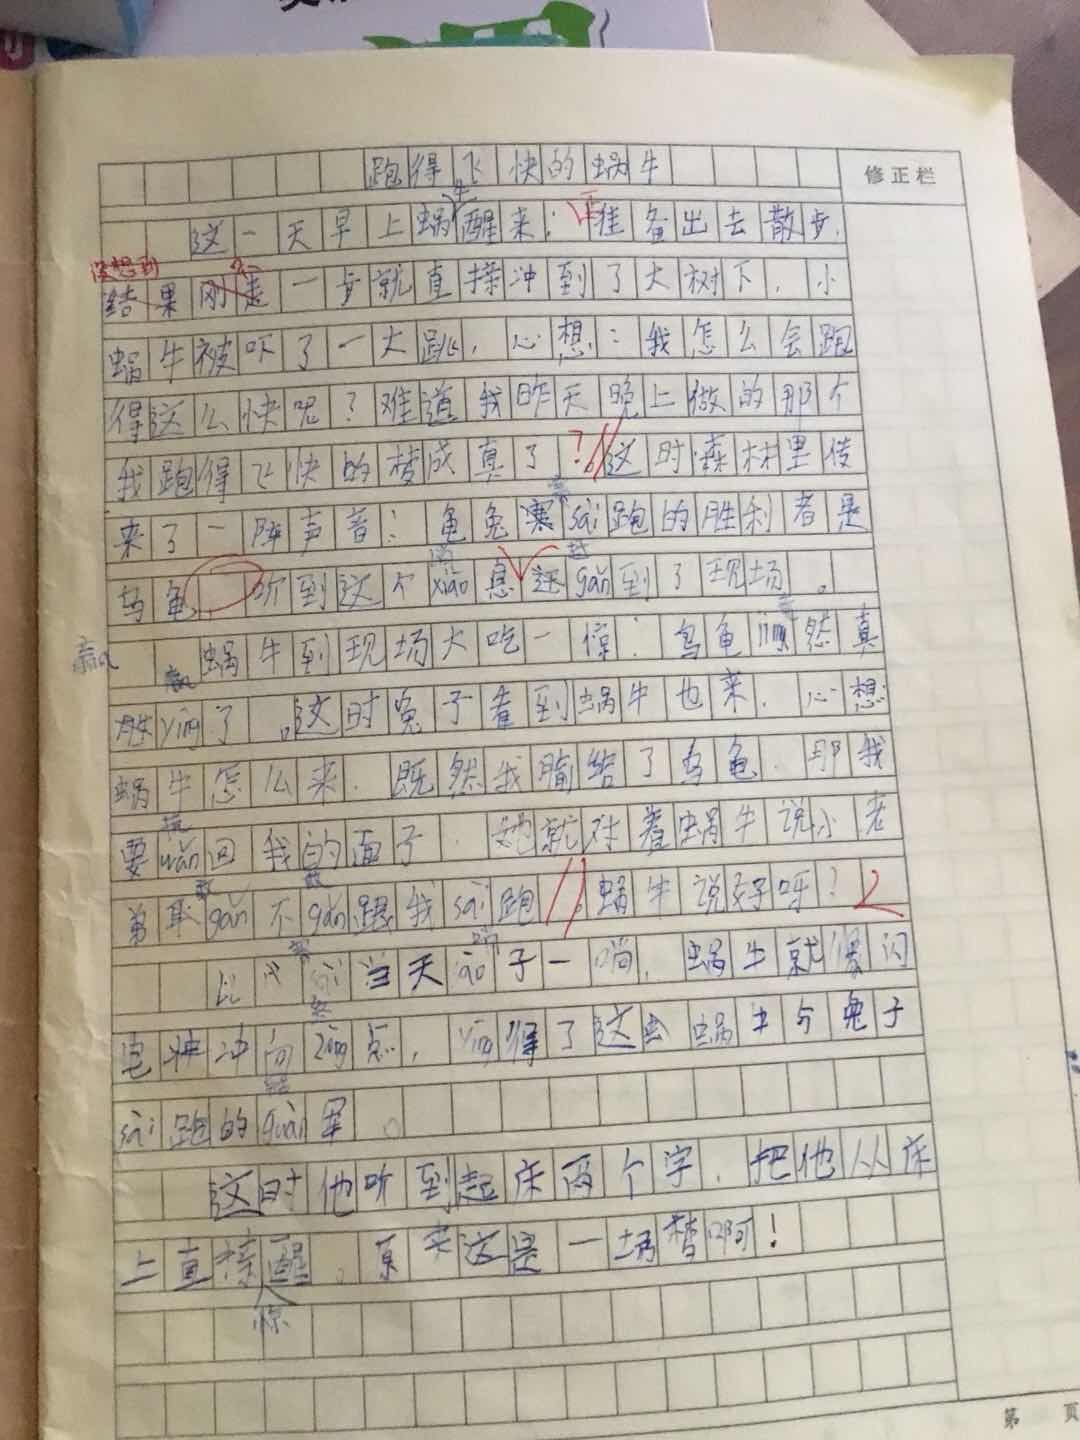 跑得飞快的蜗牛
修正栏
牛
这一天早上蜗醒来:准备出去散步.
没想到
结果刚走一步就直接冲到了大树下，小
蜗牛被吓了一大跳，心想:我怎么会跑
得这么快呢?难道我昨天晚上做的那个
我跑得飞快的梦成真了?。这时森林里传
赛
来了一阵声音:龟兔寒sài跑的胜利者是
消 赶
乌龟 听到这个xiāo息还gǎn到了现场。
竟
蜗牛到现场大吃一惊:乌龟jìng然真
赢
胜yíng了。这时兔子看到蜗牛也来.心想:
蜗牛怎么来.既然我输给了乌龟.那我
挽
要wǎn回我的面子.她就对着蜗牛说小老
敢 敢
弟取gǎn不gǎn跟我sài跑。蜗牛说好呀?
赛 哨
比 当天 子一响.蜗牛就像闪
终
电冲冲向zhōng点，yíng得了这 蜗牛与兔子
sài跑的 果。
这时他听到起床两个字.把他从床
上直接醒.原来这是一场梦啊!
惊
第 页